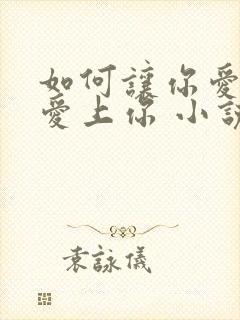 如何讓你愛
愛上你 小說
袁詠儀